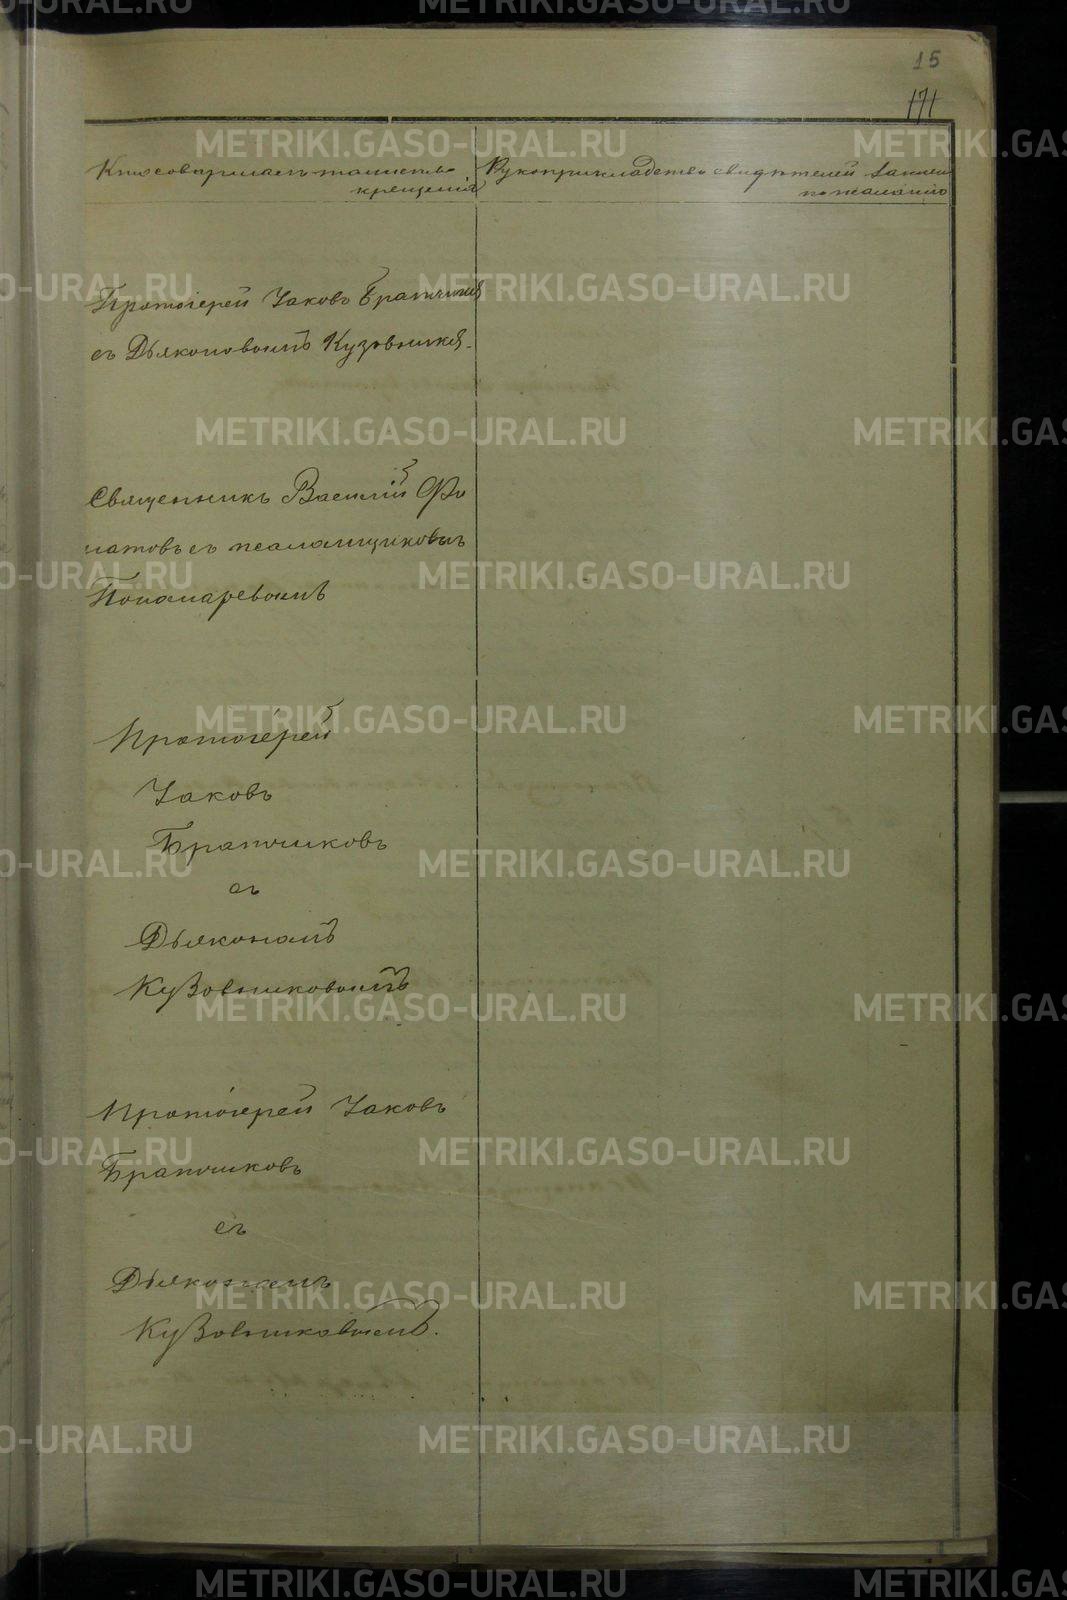 15
171
Кто совершалъ таинство
крещенія
Рукоприкладство свидѣтелей записи
по желанію
Протоіерей Іаковъ Братчиков
съ Дьякономъ Кузовников.
Священникъ Василій Фи
латовъ съ псаломщикомъ
Пономаревымъ
Протоіерей
Іаковъ
Братчиковъ
съ
Дьяконамъ
Кузовниковымъ
Протоіерей Іаковъ
Братчиковъ
съ
Дьякономъ
Кузовниковымъ.
METRIKI.GASO-URAL.RU